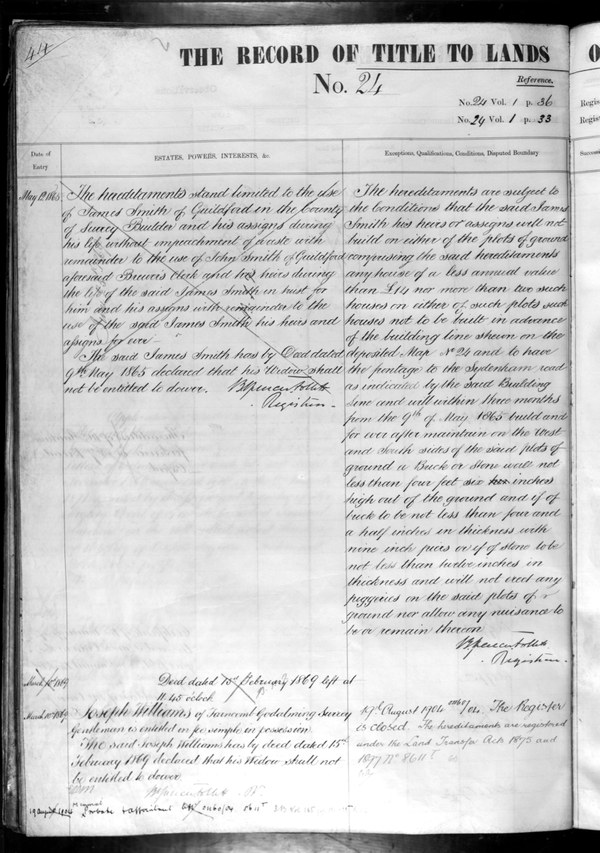 44
THE RECORD OF TITLE TO LANDS
No. 24
Reference.
No. 24 Vol. 1 p. 36
No. 24 Vol. 1 p. 33
Date of
Entry
ESTATES, POWERS, INTERESTS, &c.
Exceptions, Qualifications, Conditions, Disputed Boundary
May 12 1865
The hereditaments stand limited to the use
of James Smith of Guildford in the County
of Surrey Builder and his assigns during
his life without impeachment of waste with
remainder to the use of John Smith of Guildford
aforesaid Brewers Clerk and his heirs during
the life of the said James Smith in trust for
him and his assigns with remainder to the
use of the said James Smith his heirs and
assigns for ever
The said James Smith has by Deed dated
9th May 1865 declared that his Widow shall
not be entitled to dower.
Registrar.
The hereditaments are subject to
the conditions that the said James
Smith his heirs or assigns will not
build on either of the plots of ground
comprising the said hereditaments
any house of a less annual value
than £14 nor more than two such
houses on either of such plots such
houses not to be built in advance
of the building line shewn on the
deposited Map No 24 and to have
the frontage to the Sydenham road
as indicated by the said Building
Line and will within three months
from the 9th of May 1865 build and
for ever after maintain on the West
and South sides of the said plots of
ground a Brick or Stone wall not
less than four feet six inches
high out of the ground and if of
brick to be not less than four and
a half inches in thickness with
nine inch piers or if of Stone to be
not less than twelve inches in
thickness and will not erect any
piggeries on the said plots of
ground nor allow any nuisance to
be or remain thereon
Registrar.
March 1869
Deed dated 15th February 1869 left at
11.45 o'clock
March 1869
Joseph Williams of Farncomb Godalming Surrey
Gentleman is entitled in fee simple in possession
The said Joseph Williams has by deed dated 15th
February 1869 declared that his Widow shall not
be entitled to dower
19th August 1904 The Register
is closed. The hereditaments are registered
under the Land Transfer Acts 1875 and
1897 No 8611
19 August 1904